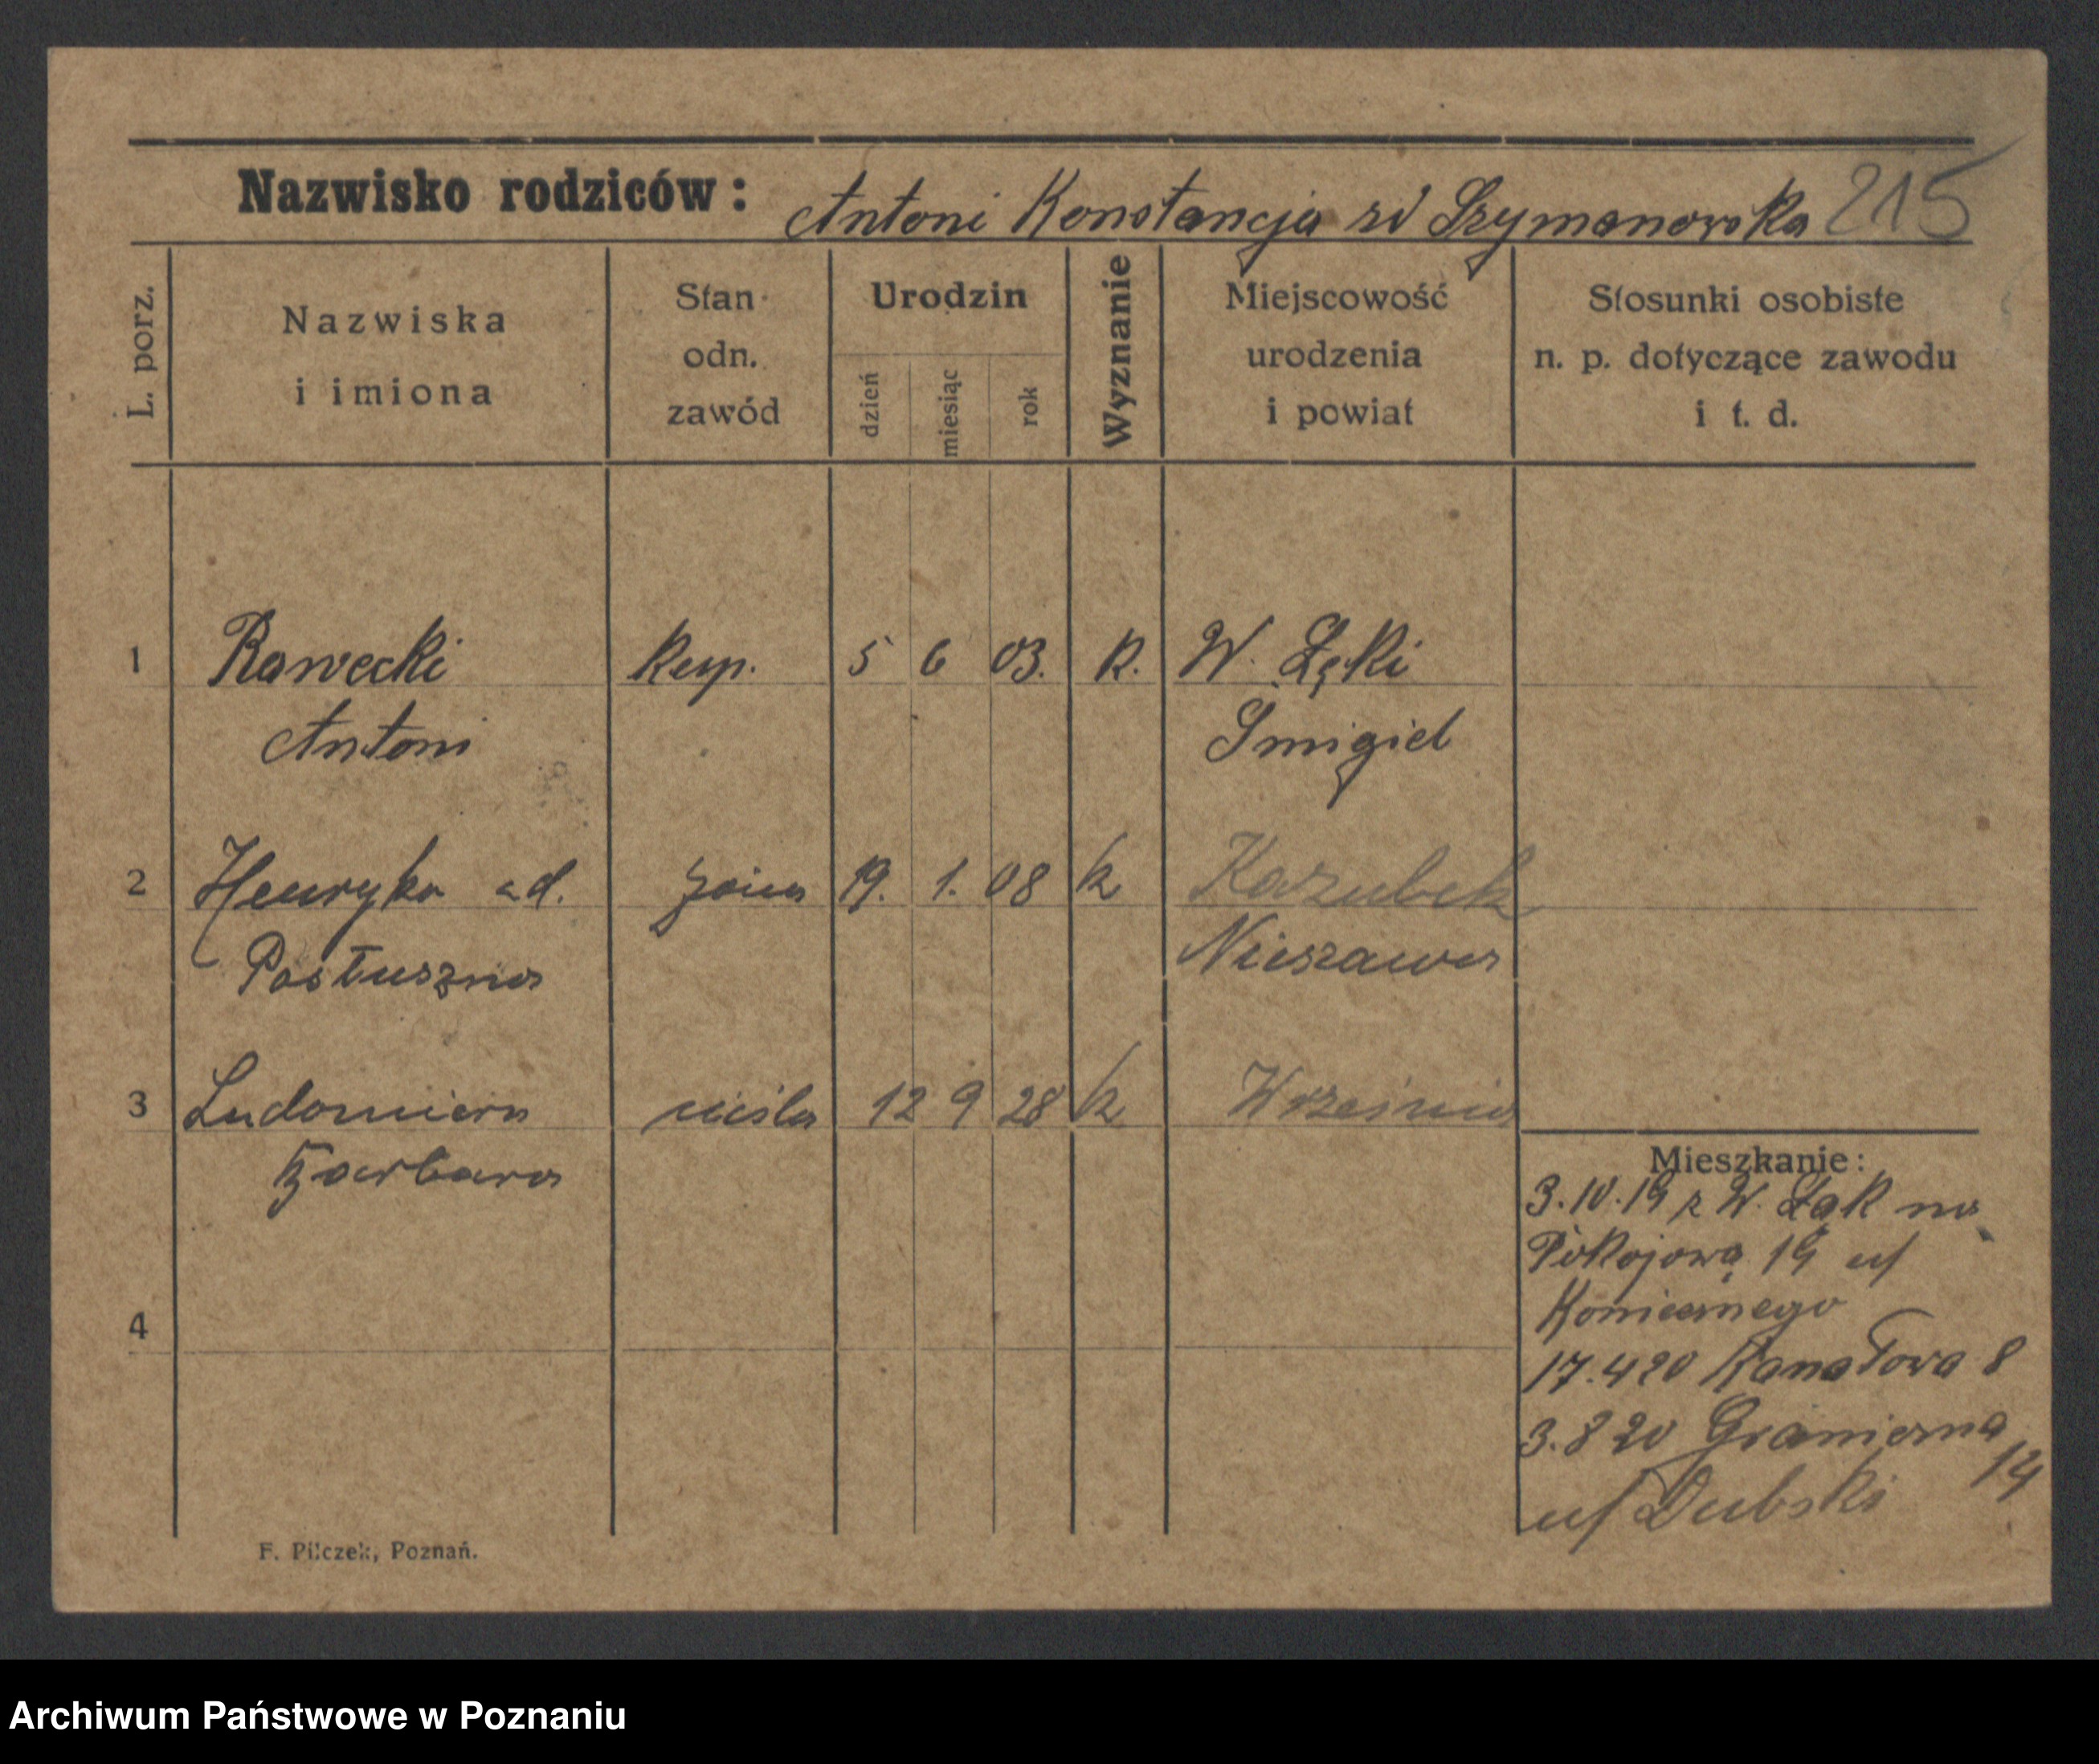 Nazwisko rodziców: Antoni Konstancja zd Szymanowska 215
L. porz.
Nazwiska
i imiona
Stan
odn.
zawód
Urodzin
dzień
miesiąc
rok
Wyznanie
Miejscowość
urodzenia
i powiat
Stosunki osobiste
n. p. dotyczące zawodu
i t. d.
1 Rawecki 5 6 03. K. W. Łęki
Antoni Śmigiel
2 Henryka 19. 1. 08 k Kazubek
Postuszna Nieszawa
3 Ludomiera 12 9 28 k Września
Barbara
4
Mieszkanie:
3.10.19 z W. Łąk na
Pokojową 19 u/
Koniecznego
17.4 20 Kanałowa 8
3.8 20 Graniczna
14
u/ Dubski
F. Pilczek, Poznań.
Archiwum Państwowe w Poznaniu